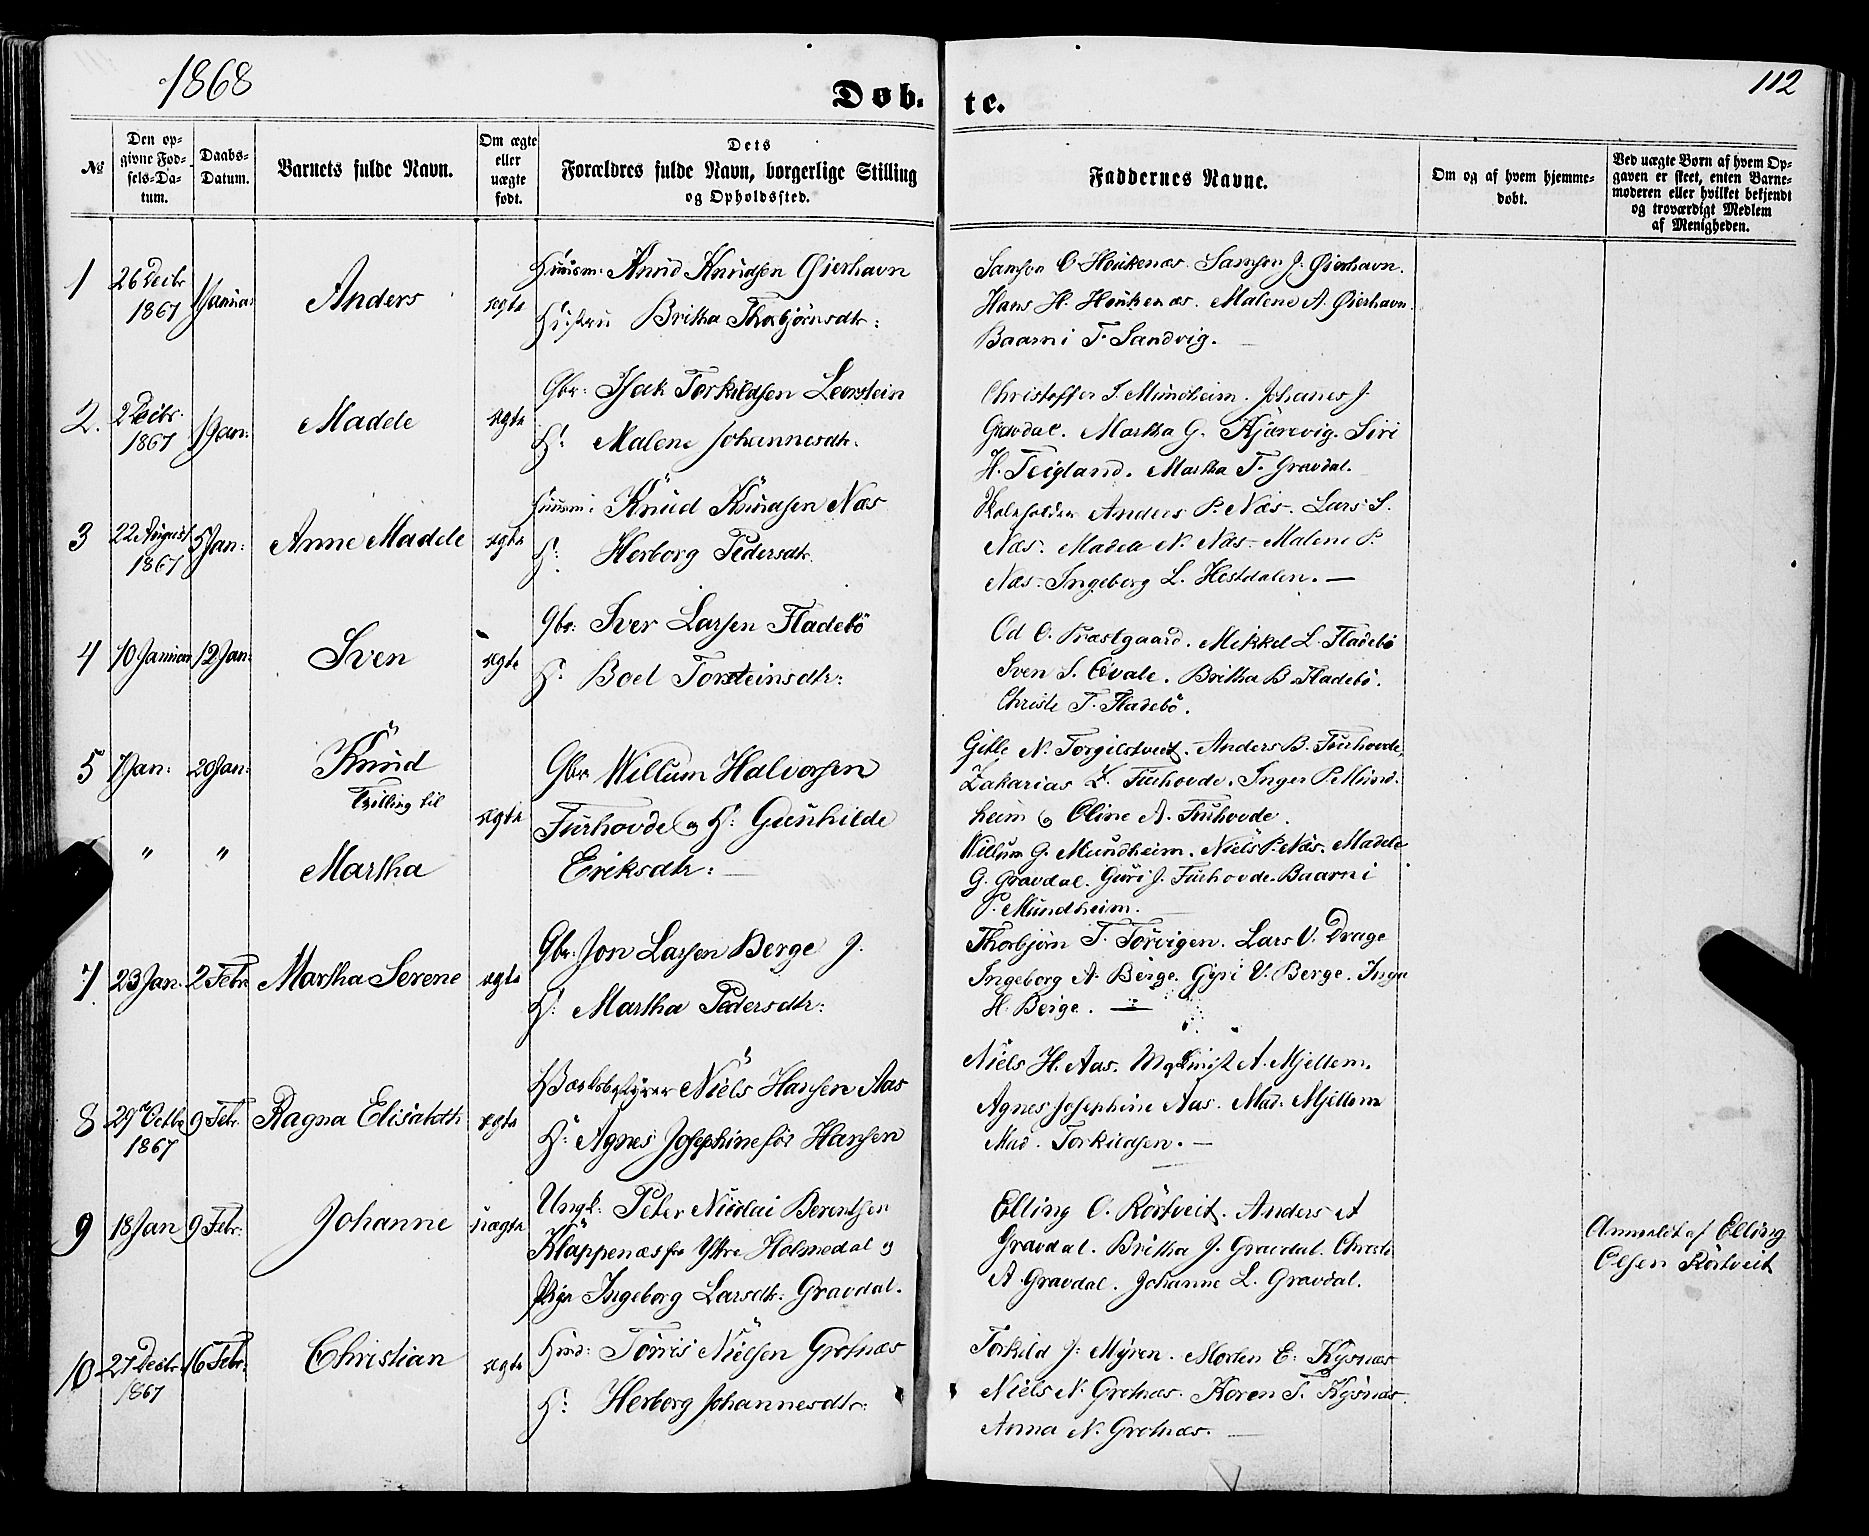 1868
Døb-
te.
112
№
Den op-
givne Fød-
sels-Da-
tum.
Daabs-
Datum.
Barnets fulde Navn.
Om ægte
eller
uægte
født.
Dets
Forældres fulde Navn, borgerlige Stilling
og Opholdssted.
Faddernes Navne.
Om og af hvem hjemme-
døbt.
Ved uægte Børn af hvem Op-
gaven er skeet, enten Barne-
moderen eller hvilket bekjendt
og troværdigt Medlem
af Menigheden.
1
26 Decbr
1867
1 Januar
Anders
ægte
Huusm: Knud Knudsen Øierhavn
Hustru Britha Thorbjörnsdtr:
Samson O Höukenæs. Samson J. Øierhavn.
Hans H. Höukenæs. Malene A. Øierhavn.
Baarni T. Sandvig.
2.
2 Decbr.
1867
1 Jan:
Madele
ægte
Gbr: Isak Torkildsen
H: Malene Johannesdtr:
Christoffer I. Mundheim. Johanes J.
Gravdal. Martha G. Kjærevig. Siri
H. Teigland. Martha T. Gravdal.
3
22 August
1867
5 Jan:
Anne Madele
ægte
Huusm: Knud Knudsen Næs
H: Herborg Pedersdtr.
Skoleholder Anders P. Næs. Lars S.
Næs. Madele N. Næs. Malene P.
Næs. Ingeborg L. Hestdalen. —
4
10 Januar
12 Jan:
Sven
ægte
Gbr: Iver Larsen Fladebö
H: Boel Torsteinsdtr:
Od O. Præstgaard. Mikkel L. Fladebö
Sven S. Britha B. Fladebö.
Christe T. Fladebö.
5
7 Jan:
20 Jan:
Knud
Tvilling til
ægte
Gbr Willum Halvorsen
Furhovde og H: Gunhilde
Eriksdtr: —
Gitle N. Torgilstveit. Anders B. Furhovde,
Zakarias Z. Furhovde. Inger P. Mund-
heim og Oline A. Furhovde.
"
"
Martha
Willum G. Mundheim. Niels P. Næs. Madele
G. Gravdal. Guri J. Furhovde. Baarni
P. Mundheim.
7.
23 Jan.
2 Febr
Martha Serene
ægte
Gbr: Jon Larsen Berge J.
H: Martha Pedersdtr:
Thorbjörn T. Torvigen. Lars V. Drage
Ingeborg A. Berge. Gyri V. Berge. Inga
H. Berge. —
8
29 Octbr
1867
9 Febr.
Ragna Elisabeth
ægte
Niels Hansen Aas
H: Agnes Josephine för Hansen
Niels H. Aas. A. Mjellem.
Agnes Josephine Aas. Mad. Mjellem
Mad. Torkildsen. —
9
18 Jan
9 Febr.
Johanne
uægte
Ungk: Peter Nicolai Berentsen
Klappenæs fra Yttre Holmedal og
Pige Ingeborg Larsdtr: Gravdal.
Elling O. Rörtveit. Anders A
Gravdal. Britha J. Gravdal. Christi
A Gravdal. Johanne L. Gravdal.
Anmeldt af Elling
Olsen Rörtveit
10
27 Decbr.
1867
16 Febr.
Christian
ægte
Huusm: Torris Nielsen Grotnæs
H: Herborg Johannesdtr:
Torkild J. Myren. Morten E. Kysnæs
Niels N. Grotnæs. Karen T. Kysnæs.
Anna N. Grotnæs. —